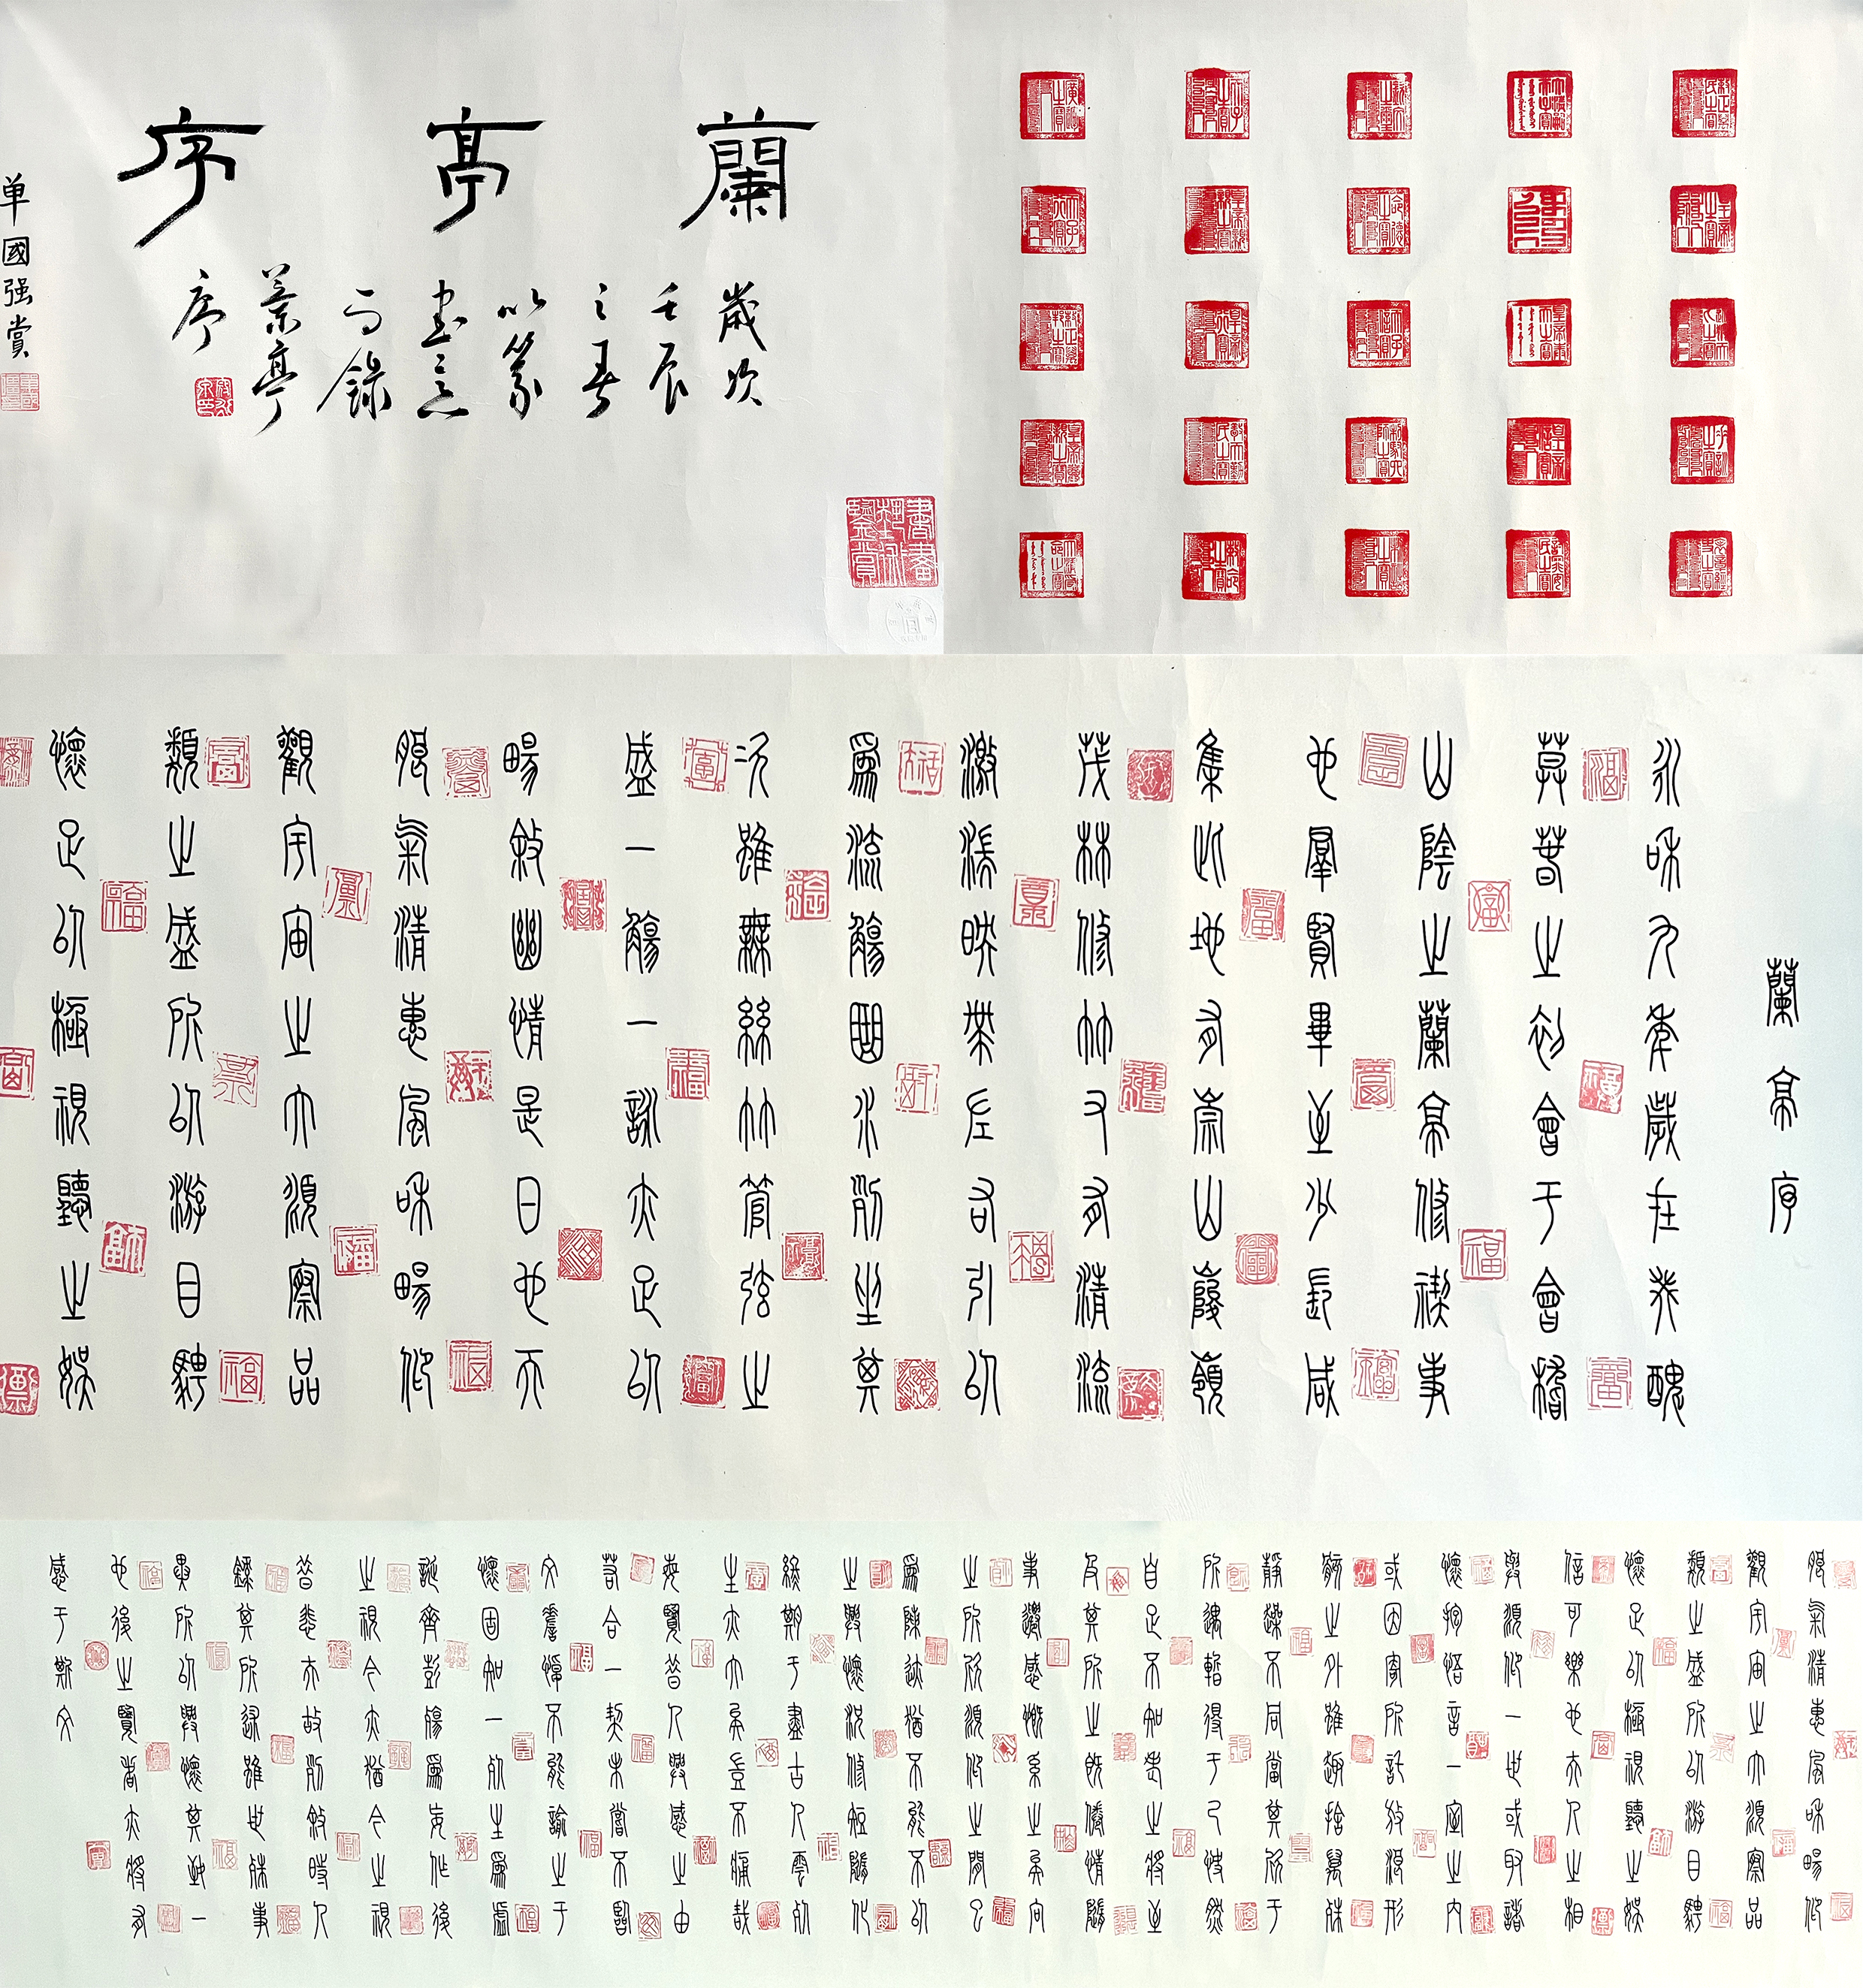 蘭亭序
歲次
壬辰
之春
以篆
書意
而錄
蘭亭
序
单國强賞
蘭亭序
永和九年歲在癸醜
暮春之初會于會稽
山陰之蘭亭修禊事
也羣賢畢至少長咸
集此地有崇山峻嶺
茂林修竹又有清流
激湍映帶左右引以
為流觴曲水列坐其
次雖無絲竹管弦之
盛一觴一詠亦足以
暢敘幽情是日也天
朗氣清惠風和暢仰
觀宇宙之大俯察品
類之盛所以游目騁
懷足以極視聽之娛
朗氣清惠風和暢仰
觀宇宙之大俯察品
類之盛所以游目騁
懷足以極視聽之娛
信可樂也夫人之相
與俯仰一世或取諸
懷抱悟言一室之内
或因寄所託放浪形
骸之外雖趣捨萬殊
靜躁不同當其欣于
所遇暫得于己快然
自足不知老之將至
及其所之既倦情隨
事遷感慨系之矣向
之所欣俯仰之間已
為陳迹猶不能不以
之興懷況修短隨化
終期于盡古人雲死
生亦大矣豈不痛哉
每覽昔人興感之由
若合一契未嘗不臨
文嗟悼不能諭之于
懷固知一死生為虛
誕齊彭殤為妄作後
之視今亦猶今之視
昔悲夫故列敘時人
錄其所述雖世殊事
異所以興懷其致一
也後之覽者亦將有
感于斯文